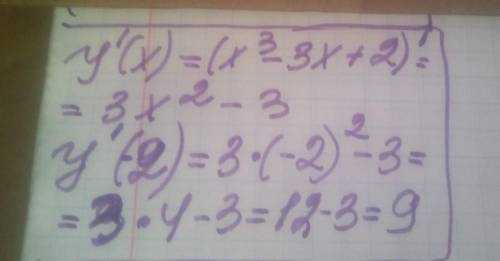 y'(x) = (x³ - 3x + 2)' =
= 3x² - 3
y'(-2) = 3·(-2)² - 3 =
= 3·4 - 3 = 12 - 3 = 9